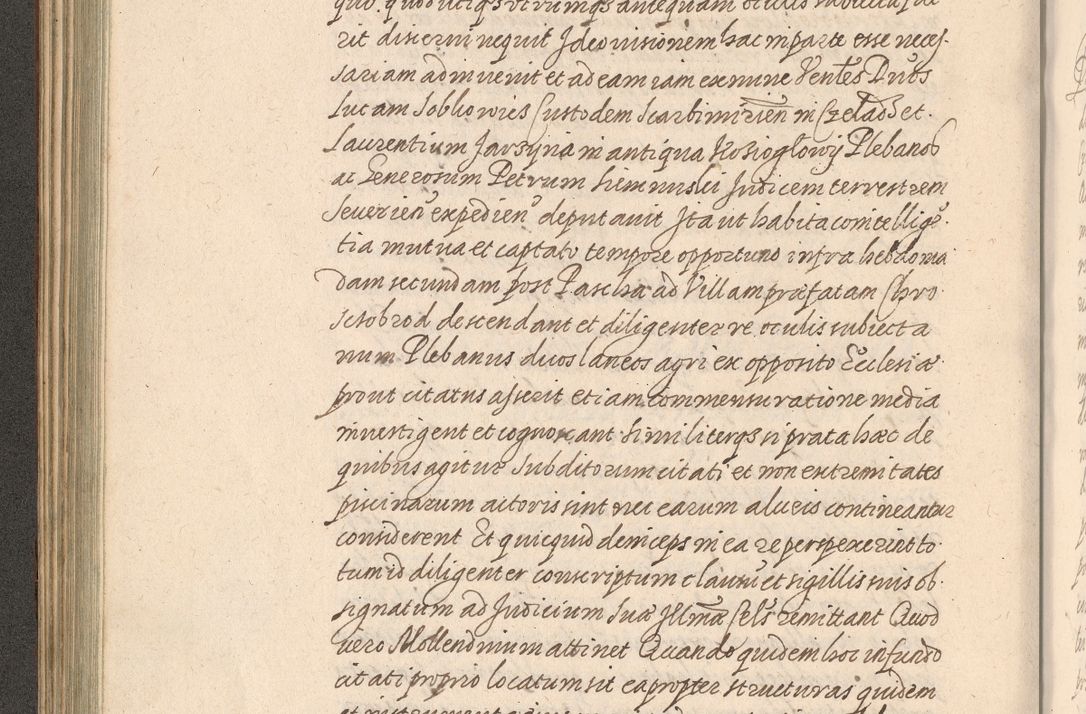 rit discerni nequit Ideo visionem hac in parte esse neces-
sariam adinvenit et ad eam iam ex nunc Ventes Duos
Lucam Soblowies Custodem Scarbimirien in Czeladz et
Laurentium Jarsyna in antiqua Kosioglowÿ Plebanos
ac Generosum Petrum Siemuński Judicem terrestrem
Severien expedien deputavit Ita ut habita cointellige-
tia mutua et captato tempore opportuno infra hebdoma
dam secundam post Pascha ad Villam præfatam Chro
sctobrod descendant et diligenter re oculis subiecta
num Plebanus duos laneos agri ex opposito Ecclesiæ
prout citatus asserit etiam commensuratione media
investigent et cognoscant Similiterqs si prata hæc de
quibus agitur Subditorum citati et non extremitates
piscinarum actoris sint nec earum alueis contineantur
considerent Et quicquid deinceps in ea re perspexerint to-
tum id diligenter conscriptum clausu et sigillis suis ob-
signatum ad Judicium Suæ Illmæ Cels remittant Quod
vero Mollendinum attinet Quando quidem hoc in fundo
citati proprio locatum sit eapropter structuras quidem